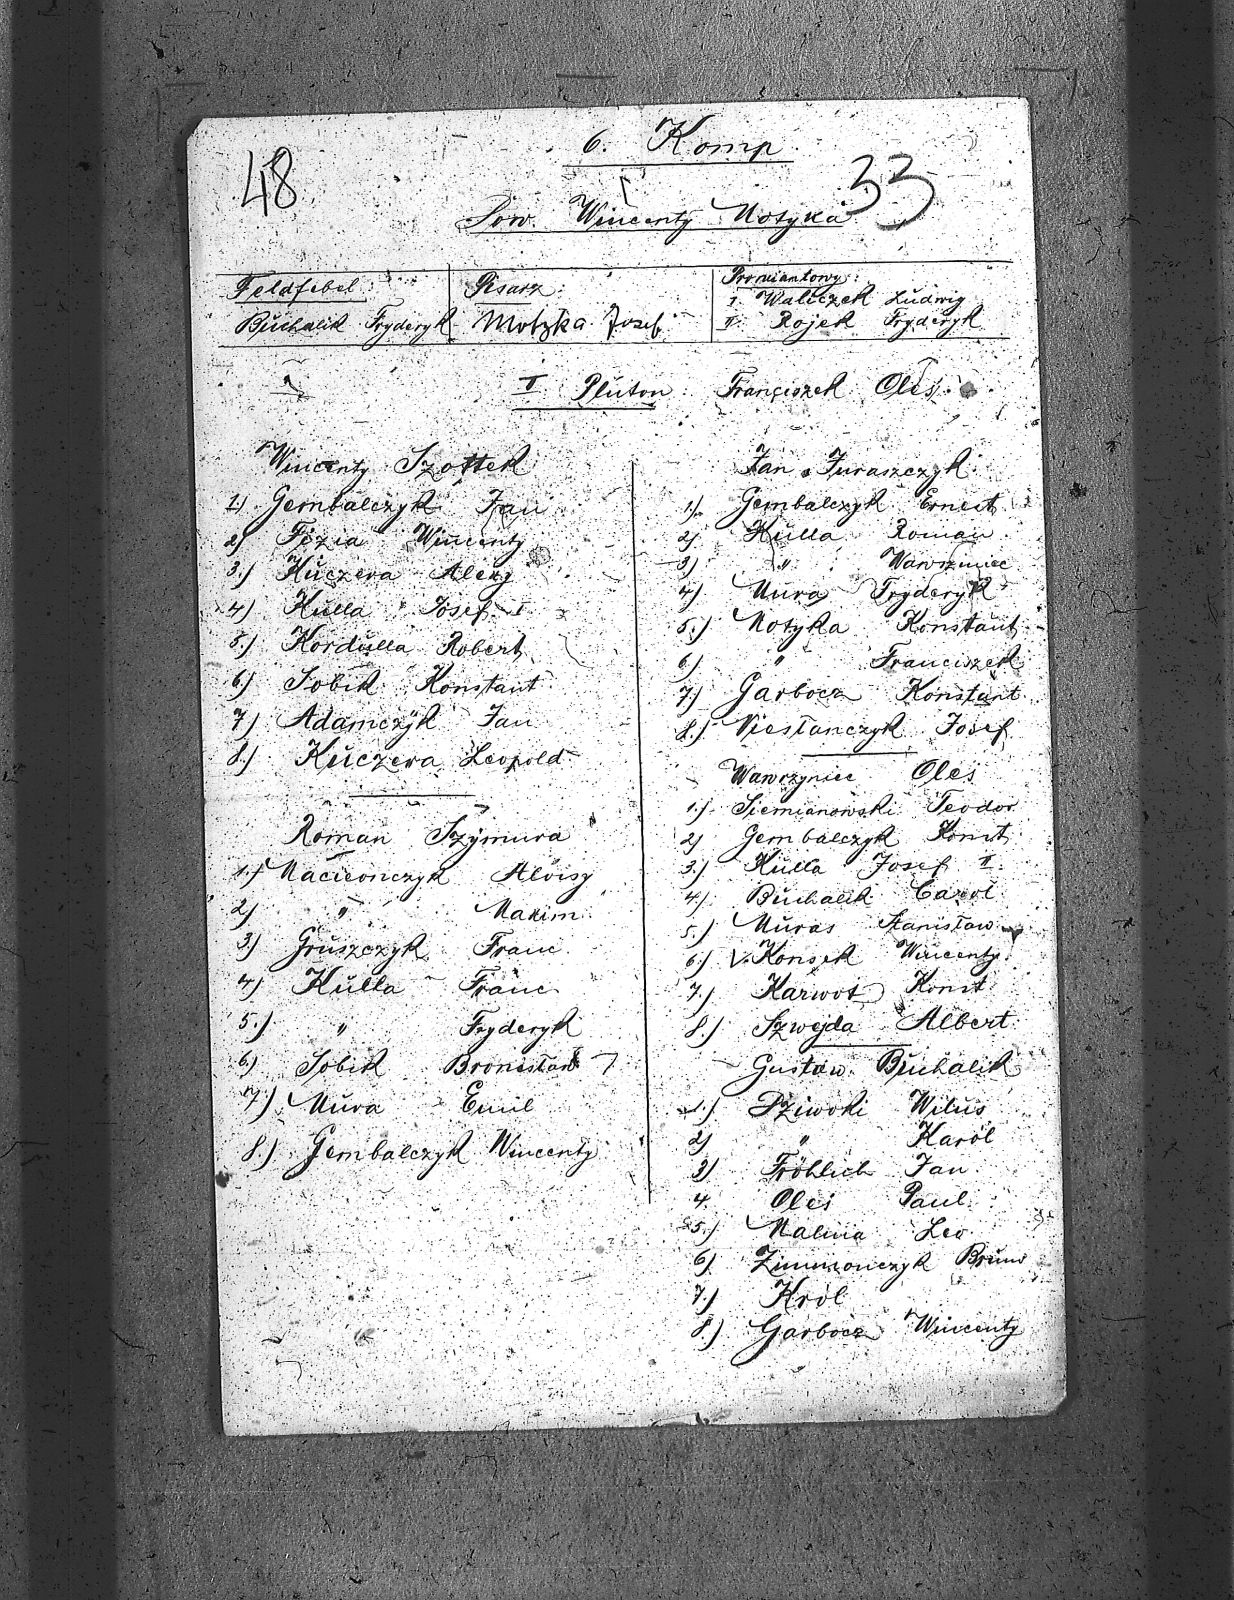 6. Komp
48
33
Pow. Wincenty Motyka
Feldfebel:
Buchalik Fryderyk
Pisarz:
Motzka Josef
Prowiantowy:
I. Waliczek Ludwig
II. Rojek Fryderyk
I Pluton Franciszek Oleś
Wincenty Szottek
1) Gembalczyk Jan
2) Fizia Wincenty
3.) Kuczera Alexy
4) Kulla Josef I
5.) Kordulla Robert
6) Sobik Konstant
7) Adamczyk Jan
8.) Kuczera Leopold
Roman Szymura
1.) Macionczyk Aloisy
2) " Maxim
3) Gruszczyk Franc
4) Kulla Franc
5.) " Fryderyk
6) Sobik Bronisław
7) Mura Emil
8.) Gembalczyk Wincenty
Jan Juraszczyk
1) Gembalczyk Ernest
2) Kulla Roman
3) " Wawrziniec
4) Mura Fryderyk
5.) Motyka Konstant
6) " Franciszek
7) Garbocz Konstant
8.) Josef
Wawrzyniec Oles
1.) Siemianowski Teodor
2) Gembalczyk Konst
3.) Kulla Josef II
4.) Buchalik Carol
5.) Muras Stanisław
6) V. Konsek Wincenty
7.) Karwot Konst
8.) Szwejda Albert
Gustaw Buchalik
1.) Dziwoki Wilus
2) " Karol
3) Fröhlich Jan
4. Oleś Paul
5.) Malina Leo
6) Zimmonczyk Bruno
7.) Król
8.) Garbocz Wincenty